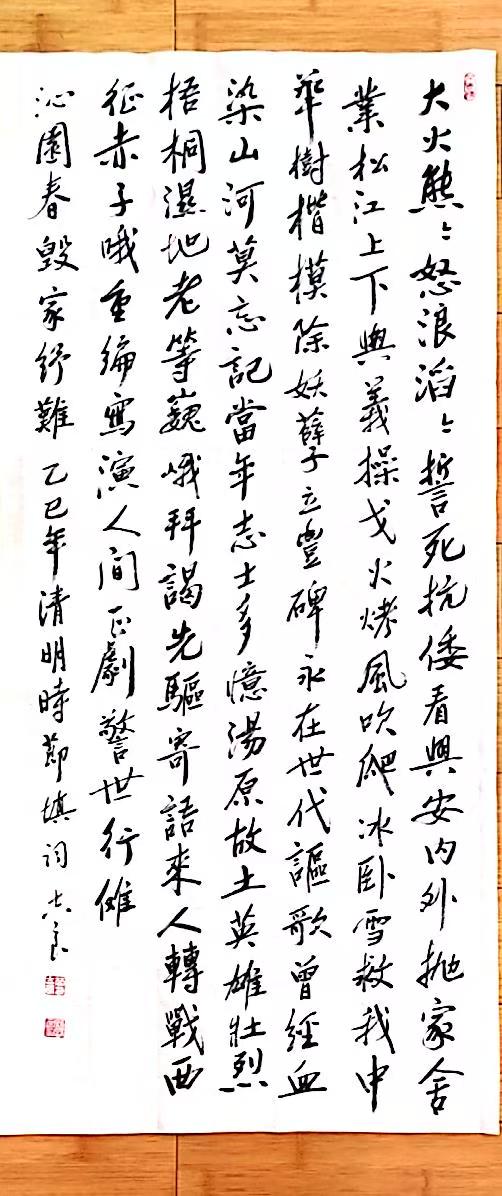 大火熊〻怒浪滔〻誓死抗倭看興安內外拋家舍
業松江上下興義操戈火烤風吹爬冰卧雪救我中
華樹楷模除妖孽立豐碑永在世代謳歌曾經血
染山河莫忘記當年志士多憶湯原故土英雄壯烈
梧桐濕地老等巍峨拜謁先驅寄語來人轉戰西
征赤子哦重編寫演人間正劇警世行儺
沁園春毀家紓難乙巳年清明時節填詞志良